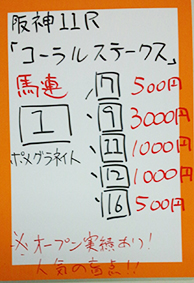 阪神11R
「コーラルステークス」
馬連
1
ポメグラネイト
・7 500円
・9 3000円
・11 1000円
・12 1000円
・16 500円
※オープン実績あり!
人気の盲点!!